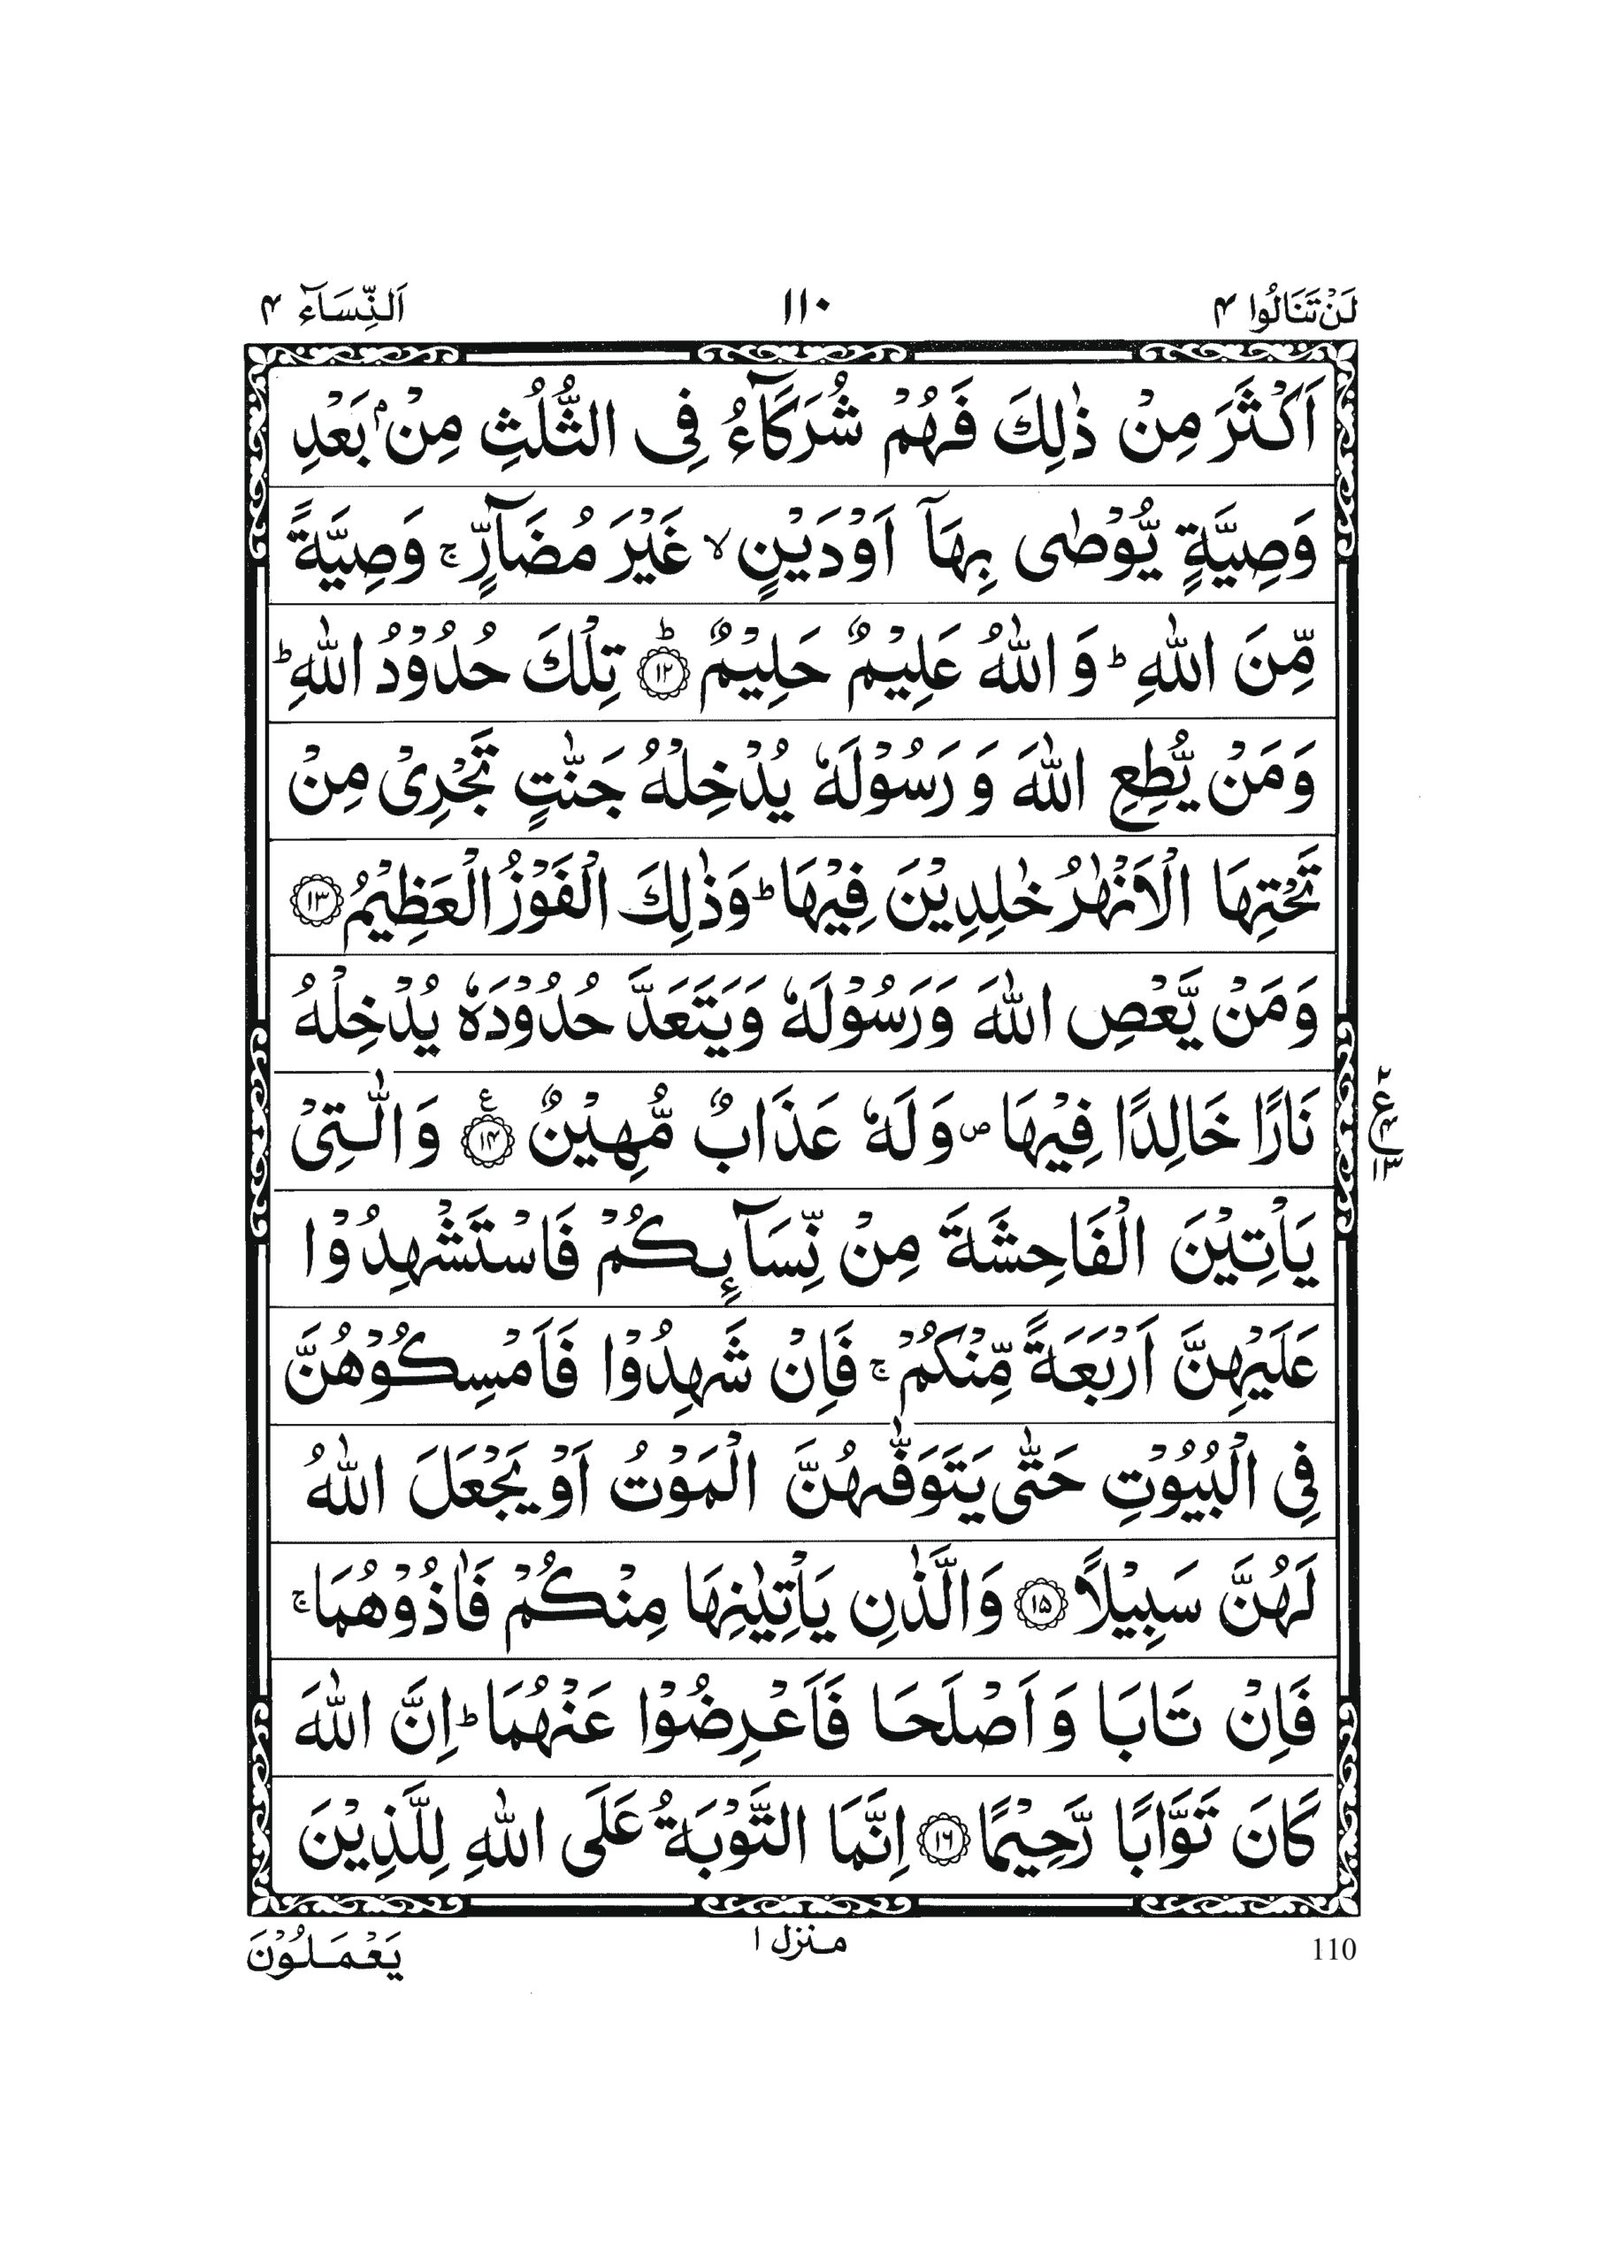 لَنْ تَنَالُوا ۴
۱۱۰
اَلنِّسَآء ۴
اَكْثَرَ مِنْ ذٰلِكَ فَهُمْ شُرَكَآءُ فِى الثُّلُثِ مِنْۢ بَعْدِ
وَصِيَّةٍ يُّوْصٰى بِهَآ اَوْدَيْنٍ ۙ غَيْرَ مُضَآرٍّ ۚ وَصِيَّةً
مِّنَ اللّٰهِ ؕ وَ اللّٰهُ عَلِيْمٌ حَلِيْمٌ ؕ ﴿۱۲﴾ تِلْكَ حُدُوْدُ اللّٰهِ ؕ
وَمَنْ يُّطِعِ اللّٰهَ وَ رَسُوْلَهٗ يُدْخِلْهُ جَنّٰتٍ تَجْرِىْ مِنْ
تَحْتِهَا الْاَنْهٰرُ خٰلِدِيْنَ فِيْهَا ؕ وَذٰلِكَ الْفَوْزُ الْعَظِيْمُ ﴿۱۳﴾
وَمَنْ يَّعْصِ اللّٰهَ وَرَسُوْلَهٗ وَيَتَعَدَّ حُدُوْدَهٗ يُدْخِلْهُ
نَارًا خَالِدًا فِيْهَا ۖ وَلَهٗ عَذَابٌ مُّهِيْنٌ ﴿۱۴﴾ ع وَالّٰتِىْ
يَاْتِيْنَ الْفَاحِشَةَ مِنْ نِّسَآٮِٕكُمْ فَاسْتَشْهِدُوْا
عَلَيْهِنَّ اَرْبَعَةً مِّنْكُمْ ۚ فَاِنْ شَهِدُوْا فَاَمْسِكُوْهُنَّ
فِى الْبُيُوْتِ حَتّٰى يَتَوَفّٰٮهُنَّ الْمَوْتُ اَوْ يَجْعَلَ اللّٰهُ
لَهُنَّ سَبِيْلًا ﴿۱۵﴾ وَالَّذٰنِ يَاْتِيٰنِهَا مِنْكُمْ فَاٰذُوْهُمَا ۚ
فَاِنْ تَابَا وَ اَصْلَحَا فَاَعْرِضُوْا عَنْهُمَا ؕ اِنَّ اللّٰهَ
كَانَ تَوَّابًا رَّحِيْمًا ﴿۱۶﴾ اِنَّمَا التَّوْبَةُ عَلَى اللّٰهِ لِلَّذِيْنَ
110
منزل ۱
يَعْمَلُوْنَ